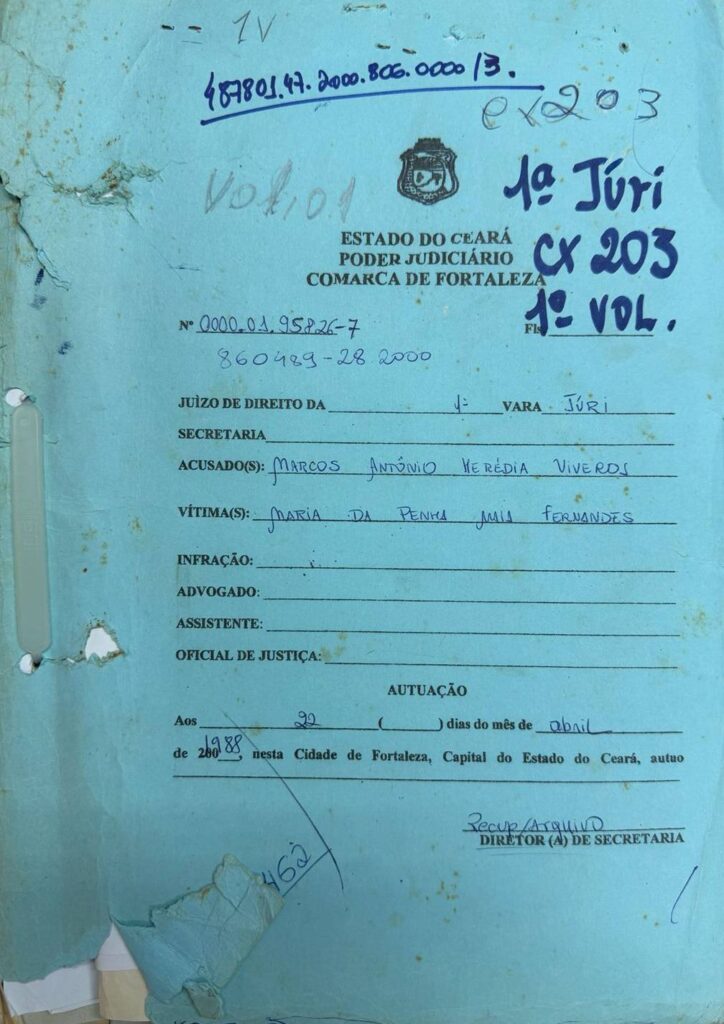 1V
487801.47.2000.806.0000/3.
cx 203
Vol. 01
1ª Júri
ESTADO DO CEARÁ
PODER JUDICIÁRIO
CX 203
COMARCA DE FORTALEZA
1º VOL.
Nº 0000.01.95826-7 Fls
860489-28 2000
JUÌZO DE DIREITO DA 1ª VARA JÚRI
SECRETARIA
ACUSADO(S): MARCOS ANTÔNIO HERÉDIA VIVEROS
VÍTIMA(S): MARIA DA PENHA MAIA FERNANDES
INFRAÇÃO:
ADVOGADO:
ASSISTENTE:
OFICIAL DE JUSTIÇA:
AUTUAÇÃO
Aos 22 ( ) dias do mês de abril
de 200 1988, nesta Cidade de Fortaleza, Capital do Estado do Ceará, autuo
Recup/Arquivo
DIRETOR (A) DE SECRETARIA
462